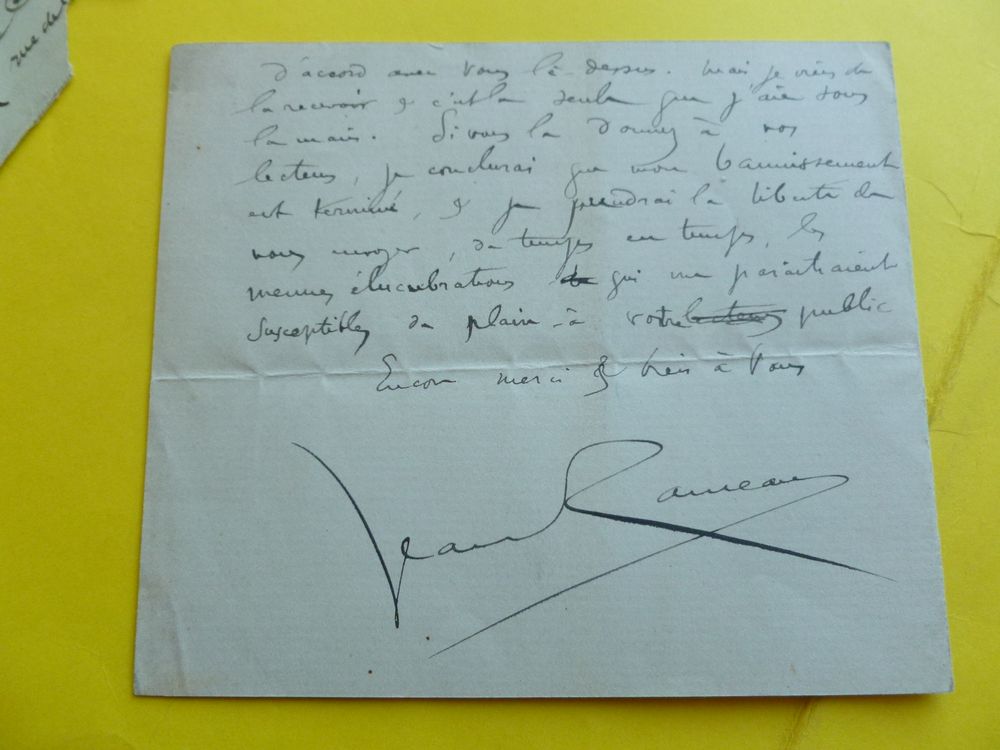 rue de
d'accord avec vous là-dessus. Mais je viens de
la recevoir & c'est la seule que j'aie sous
la main. Si vous la donnez à vos
lecteurs, je conclurai que mon bannissement
est terminé, & je prendrai la liberté de
vous envoyer, de temps en temps, les
menues élucubrations qui me paraîtraient
susceptibles de plaire à votre lecteurs public
Encore merci & bien à vous
Jean Rameau